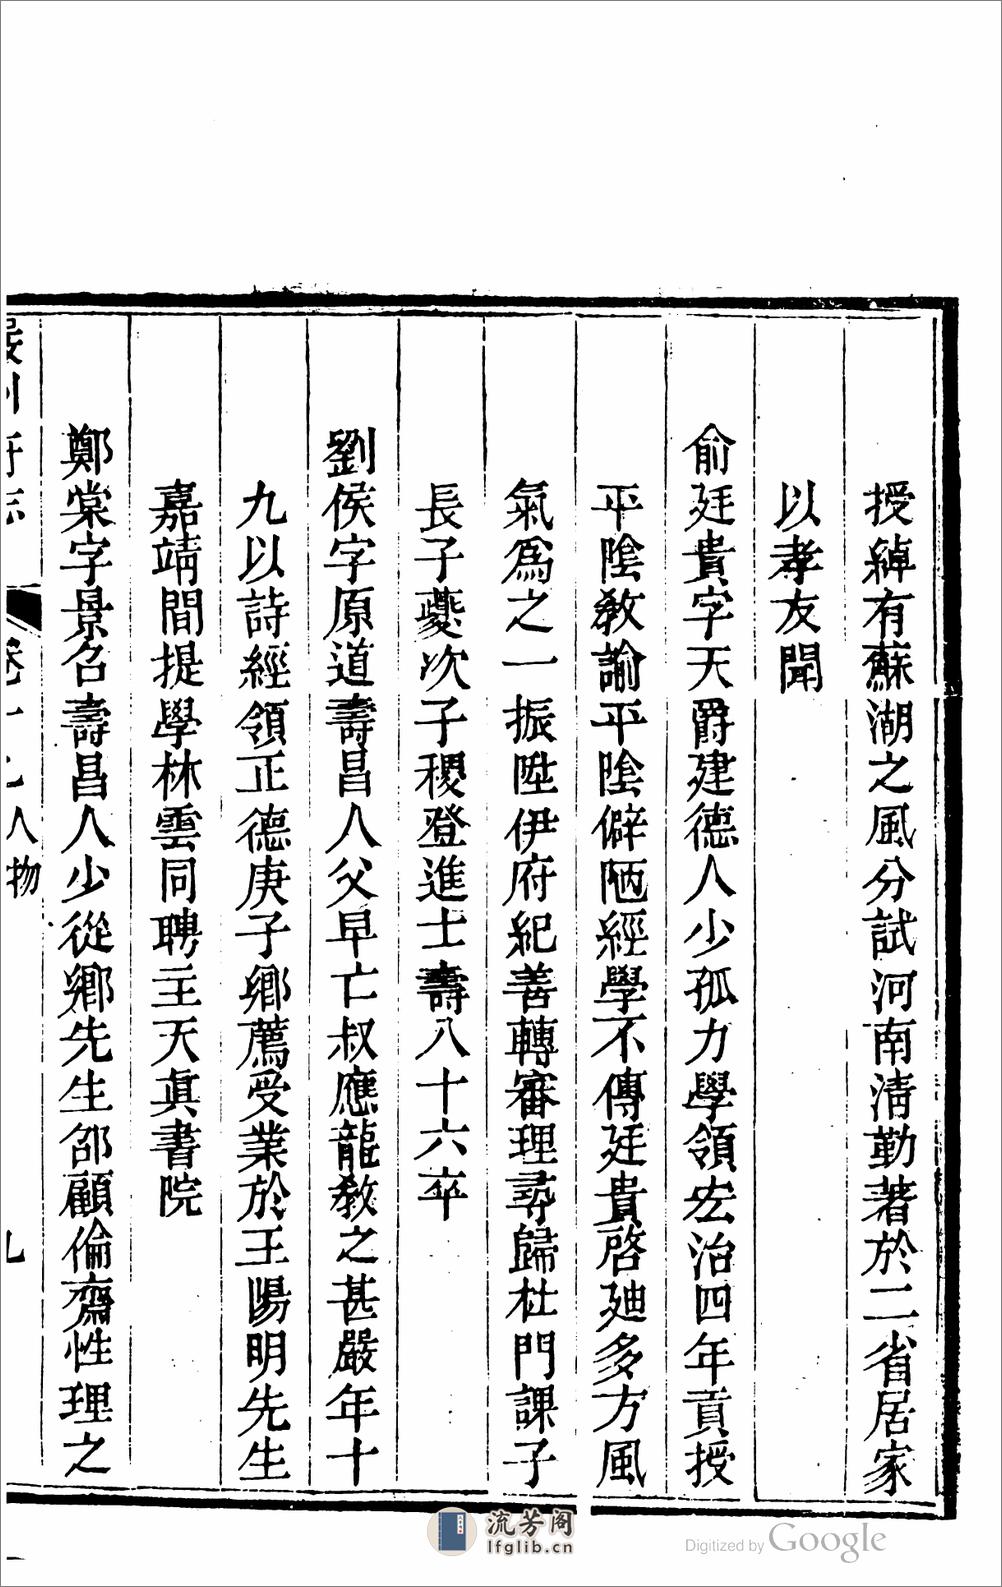 授綽有蘇湖之風分試河南淸勤著於二省居家
以孝友聞
俞廷貴字天爵建德人少孤力學領宏治四年貢授
平陰敎諭平陰僻陋經學不傳廷貴啓廸多方風
氣爲之一振陞伊府紀善轉審理尋歸杜門課子
長子夔次子稷登進士壽八十六卒
劉侯字原道壽昌人父早亡叔應龍敎之甚嚴年十
九以詩經領正德庚子鄉薦受業於王陽明先生
嘉靖間提學林雲同聘主天眞書院
鄭棠字景召壽昌人少從鄉先生邵顧倫齋性理之
嚴州府志
卷十九人物
九
流芳阁
lfglib.cn
Digitized by Google